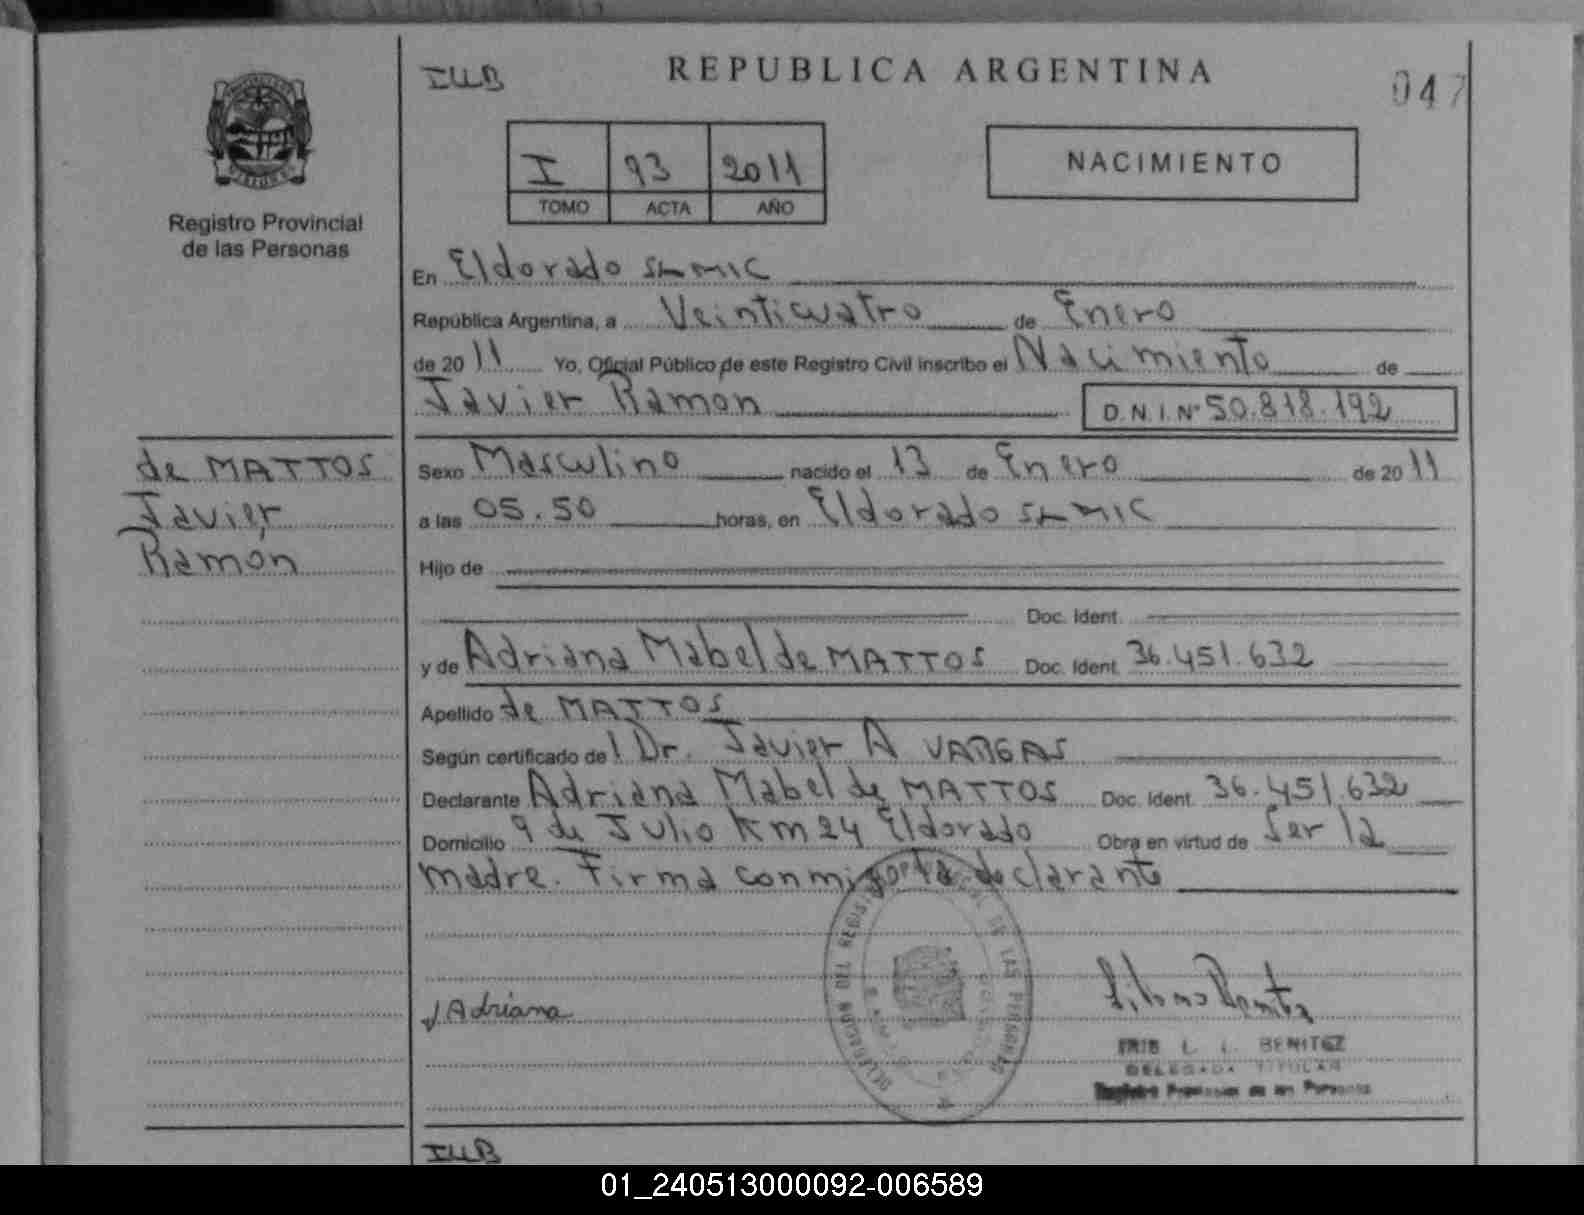 ILLB
REPUBLICA ARGENTINA
047
I 93 2011
TOMO ACTA AÑO
NACIMIENTO
Registro Provincial
de las Personas
En Eldorado
República Argentina, a Veinticuatro de Enero
de 2011 Yo, Oficial Público de este Registro Civil inscribo el Nacimiento de
Javier Ramon D.N.I. Nº 50.818.192
de MATTOS
Javier
Ramon
Sexo Masculino nacido el 13 de Enero de 2011
a las 05.50 horas, en Eldorado
Hijo de
Doc. Ident.
y de Adriana Mabel de MATTOS Doc. Ident. 36.451.632
Apellido de MATTOS
Según certificado del Dr. Javier A VARGAS
Declarante Adriana Mabel de MATTOS Doc. Ident. 36.451.632
Domicilio 9 de Julio Km 24 Eldorado Obra en virtud de Ser la
madre. Firma conmigo la declarante
DELEGACION DEL REGISTRO DE LAS PERSONAS
Adriana
IRIS L. L. BENITEZ
DELEGADA TITULAR
Registro Provincial de las Personas
ILLB
01_240513000092-006589